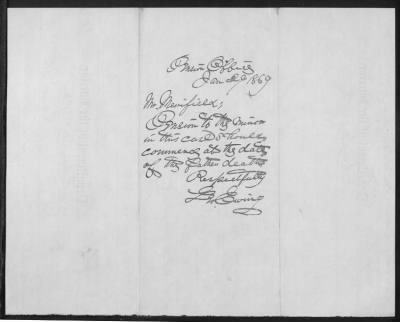 Pension Office
Jan 1869
Mr. Merrifield,
Pension to the minor
in this case should
commence at the date
of the father death
Respectfully
Ewing